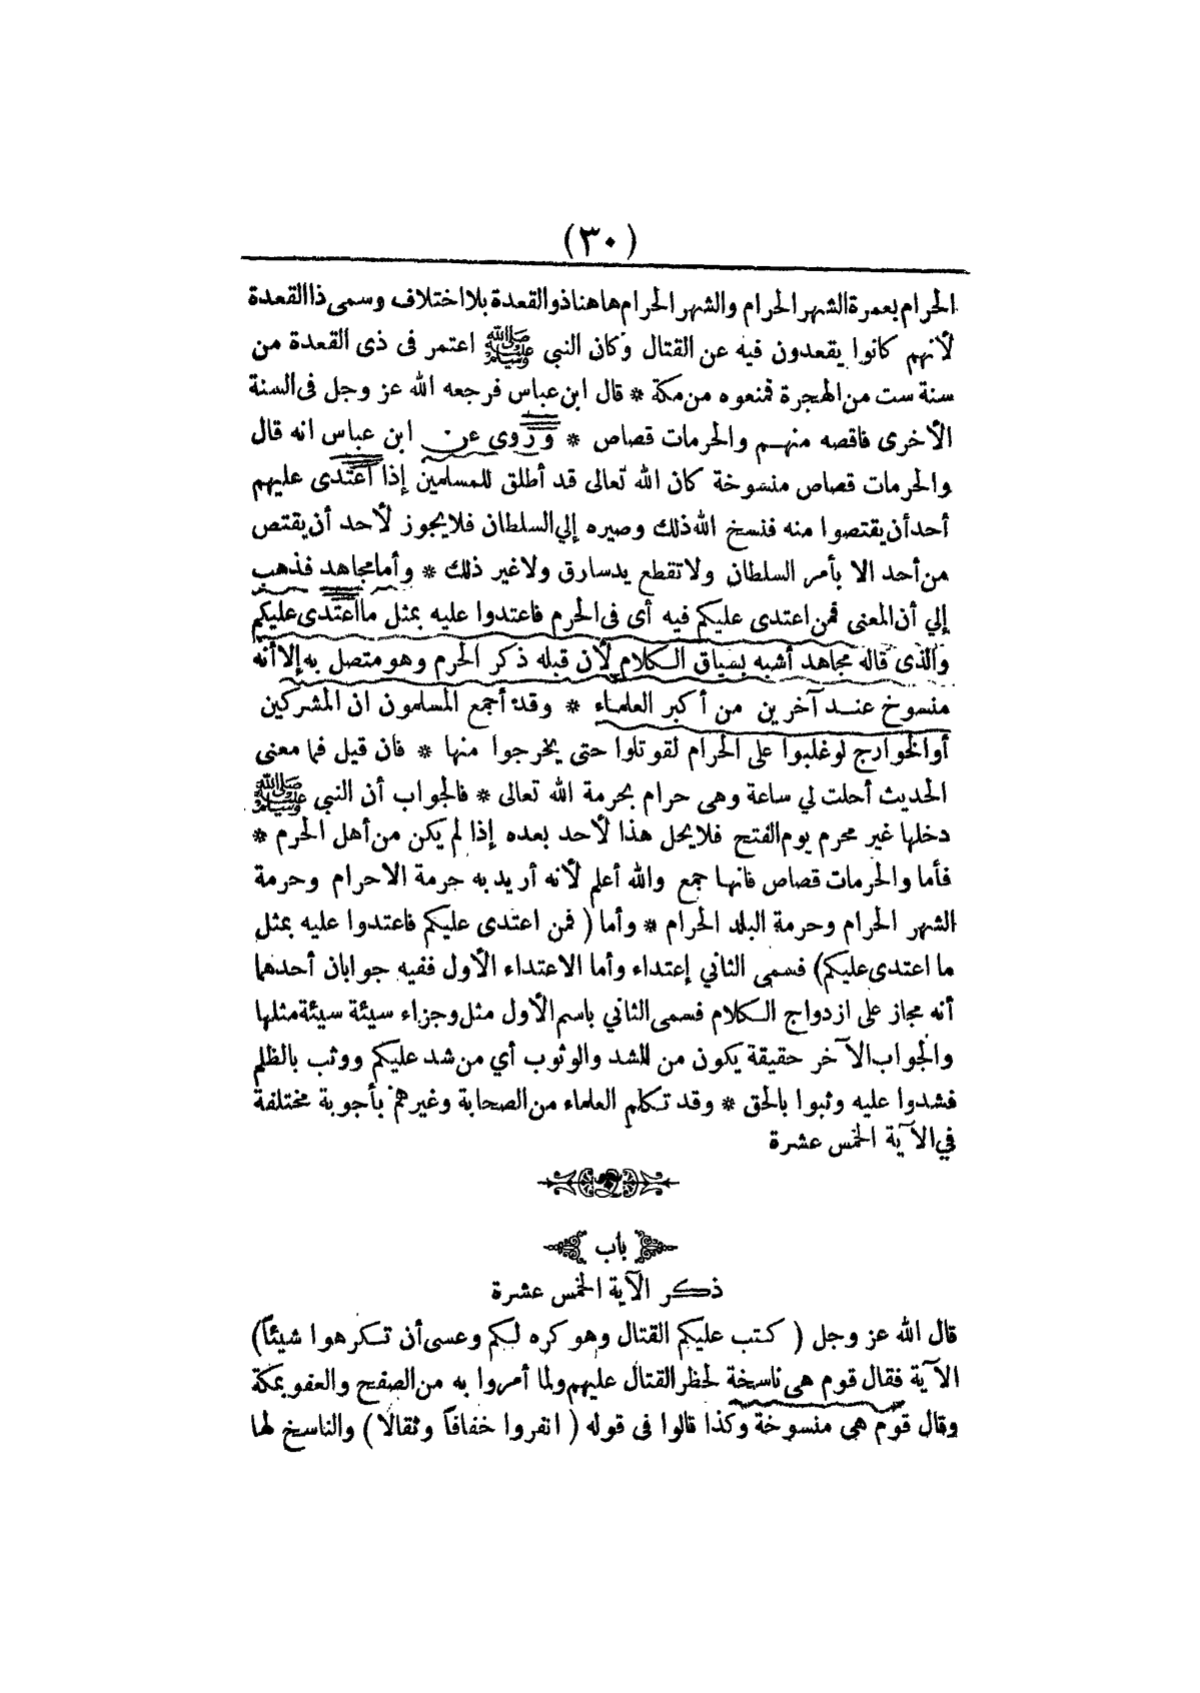 (٣٠)
الحرام بعمرة الشهر الحرام والشهر الحرام هاهنا ذو القعدة بلا اختلاف وسمى ذا القعدة
لأنهم كانوا يقعدون فيه عن القتال وكان النبي ﷺ اعتمر فى ذى القعدة من
سنة ست من الهجرة فمنعوه من مكة * قال ابن عباس فرجعه الله عز وجل فى السنة
الأخرى فاقصه منهم والحرمات قصاص * وروى عن ابن عباس انه قال
والحرمات قصاص منسوخة كان الله تعالى قد أطلق للمسلمين إذا اعتدى عليهم
أحد أن يقتصوا منه فنسخ الله ذلك وصيره إلي السلطان فلا يجوز لأحد أن يقتص
من أحد الا بأمر السلطان ولا تقطع يد سارق ولا غير ذلك * وأما مجاهد فذهب
إلي أن المعنى فمن اعتدى عليكم فيه أى فى الحرم فاعتدوا عليه بمثل ما اعتدى عليكم
والذى قاله مجاهد أشبه بسياق الكلام لأن قبله ذكر الحرم وهو متصل به إلا أنه
منسوخ عند آخرين من أكبر العلماء * وقد أجمع المسلمون ان المشركين
أو الخوارج لو غلبوا على الحرام لقوتلوا حتى يخرجوا منها * فان قيل فما معنى
الحديث أحلت لي ساعة وهى حرام بحرمة الله تعالى * فالجواب أن النبي ﷺ
دخلها غير محرم يوم الفتح فلا يحل هذا لأحد بعده إذا لم يكن من أهل الحرم *
فأما والحرمات قصاص فانها جمع والله أعلم لأنه أريد به حرمة الاحرام وحرمة
الشهر الحرام وحرمة البلد الحرام * وأما ( فمن اعتدى عليكم فاعتدوا عليه بمثل
ما اعتدى عليكم) فسمى الثاني إعتداء وأما الاعتداء الأول ففيه جوابان أحدهما
أنه مجاز على ازدواج الكلام فسمى الثاني باسم الأول مثل وجزاء سيئة سيئة مثلها
والجواب الآخر حقيقة يكون من الشد والوثوب أي من شد عليكم ووثب بالظلم
فشدوا عليه وثبوا بالحق * وقد تكلم العلماء من الصحابة وغيرهم بأجوبة مختلفة
في الآية الخمس عشرة
باب
ذكر الآية الخمس عشرة
قال الله عز وجل ( كتب عليكم القتال وهو كره لكم وعسى أن تكرهوا شيئاً)
الآية فقال قوم هى ناسخة لحظر القتال عليهم ولما أمروا به من الصفح والعفو بمكة
وقال قوم هى منسوخة وكذا قالوا فى قوله ( انفروا خفافاً وثقالا ) والناسخ لها